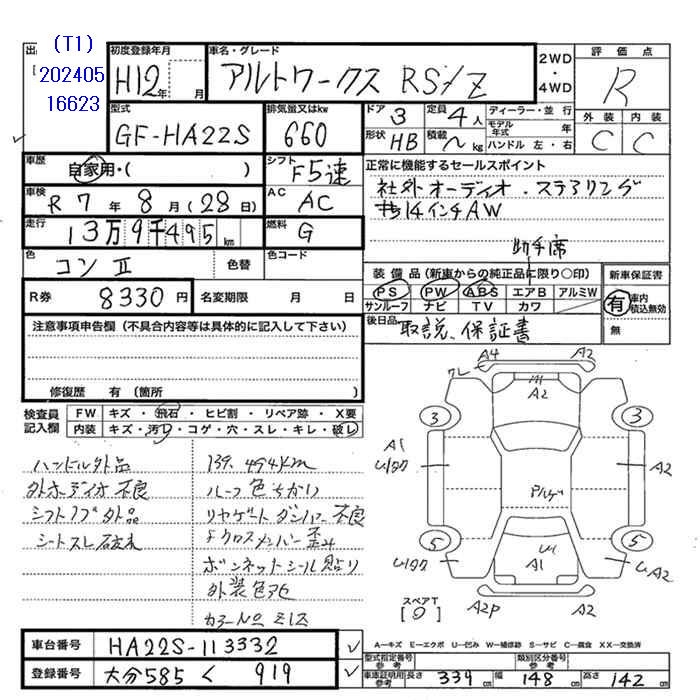 (T1)
202405
16623
出
初度登録年月
H12年 月
車名・グレード
アルトワークス RS/Z
2WD
・
4WD
評価点
R
型式
GF-HA22S
排気量又はkw
660
ドア 3
定員 4人
形状 HB
積載 〜 kg
ディーラー・並行
モデル年式 年
ハンドル 左・右
外装 内装
C C
車歴
自家用・( )
シフト
F5速
正常に機能するセールスポイント
社外オーディオ・ステアリング
14インチAW
車検
R 7年 8月(28日)
AC
AC
走行
13万9千495km
燃料
G
助手席
色
コンⅡ
色替
色コード
装備品(新車からの純正品に限り○印)
PS PW ABS エアB アルミW
サンルーフ ナビ TV カワ
新車保証書
有 車内積込無効
無
R券
8330円
名変期限 月 日
後日品
取説、保証書
注意事項申告欄(不具合内容等は具体的に記入して下さい)
修復歴 有(箇所 )
検査員記入欄
FW キズ・飛石・ヒビ割・リペア跡・X要
内装 キズ・汚れ・コゲ・穴・スレ・キレ・破レ
ハンドル外品
外オーディオ不良
シフトノブ外品
シートスレ破れ
139,494km
ルーフ色ちがい
リヤゲートダンパー不良
Fクロスメンバー歪み
ボンネットシール貼り
外装色アセ
カラーNoミエズ
A4
A2
A2
3
3
A1
A2
5
5
A1
A2
A2P
A2
スペアT
車台番号
HA22S-113332
登録番号
大分585 く 919
A―キズ E―エクボ U―凹み W―補修跡 S―サビ C―腐食 XX―交換済
型式指定番号参考
類別区分番号参考
車庫証明用参考 長さ 339cm 幅 148cm 高さ 142cm